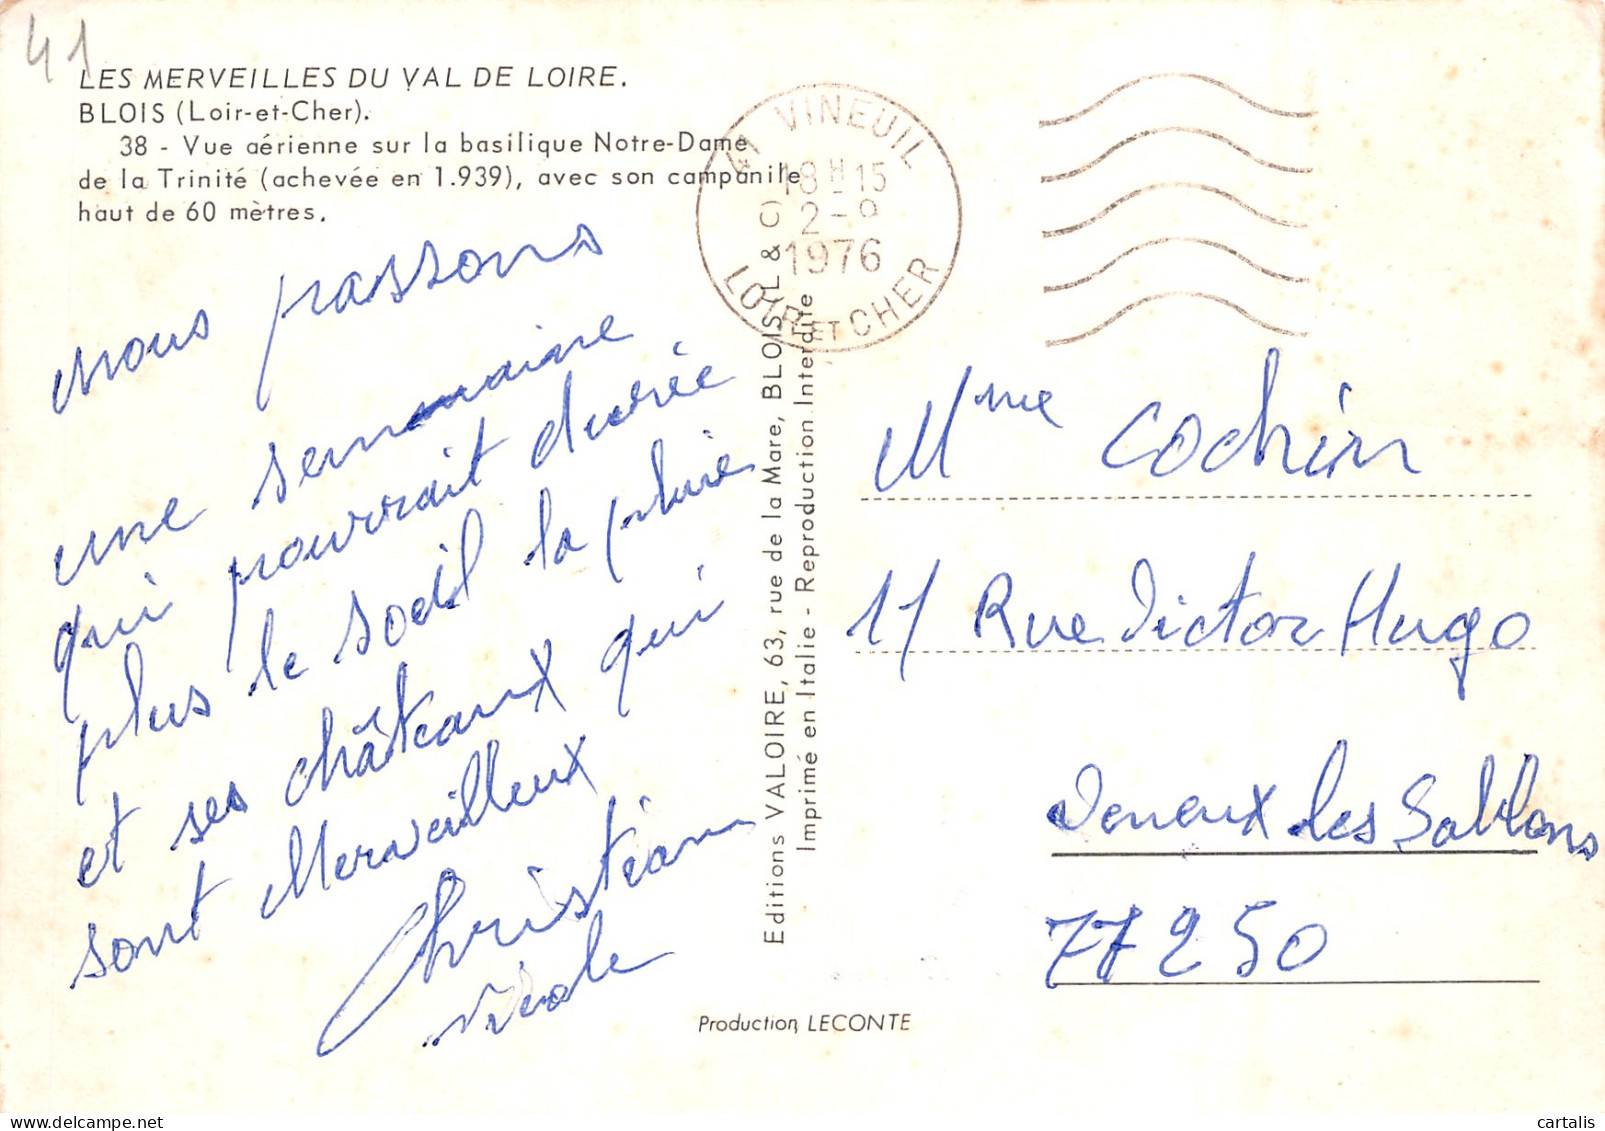 41
LES MERVEILLES DU VAL DE LOIRE.
BLOIS (Loir-et-Cher).
38 - Vue aérienne sur la basilique Notre-Dame
de la Trinité (achevée en 1.939), avec son campanile
haut de 60 mètres.
41 VINEUIL
18H15
2-9
1976
LOIR ET CHER
nous passons
une semaine
qui pourrait durée
plus le soleil la pluie
et ses châteaux qui
sont Merveilleux
Christian
Nicole
Editions VALOIRE, 63, rue de la Mare, BLOIS (L & C)
Imprimé en Italie - Reproduction Interdite
Mme Cochin
11 Rue Victor Hugo
Veneux les Sablons
77250
Production LECONTE
cartalis